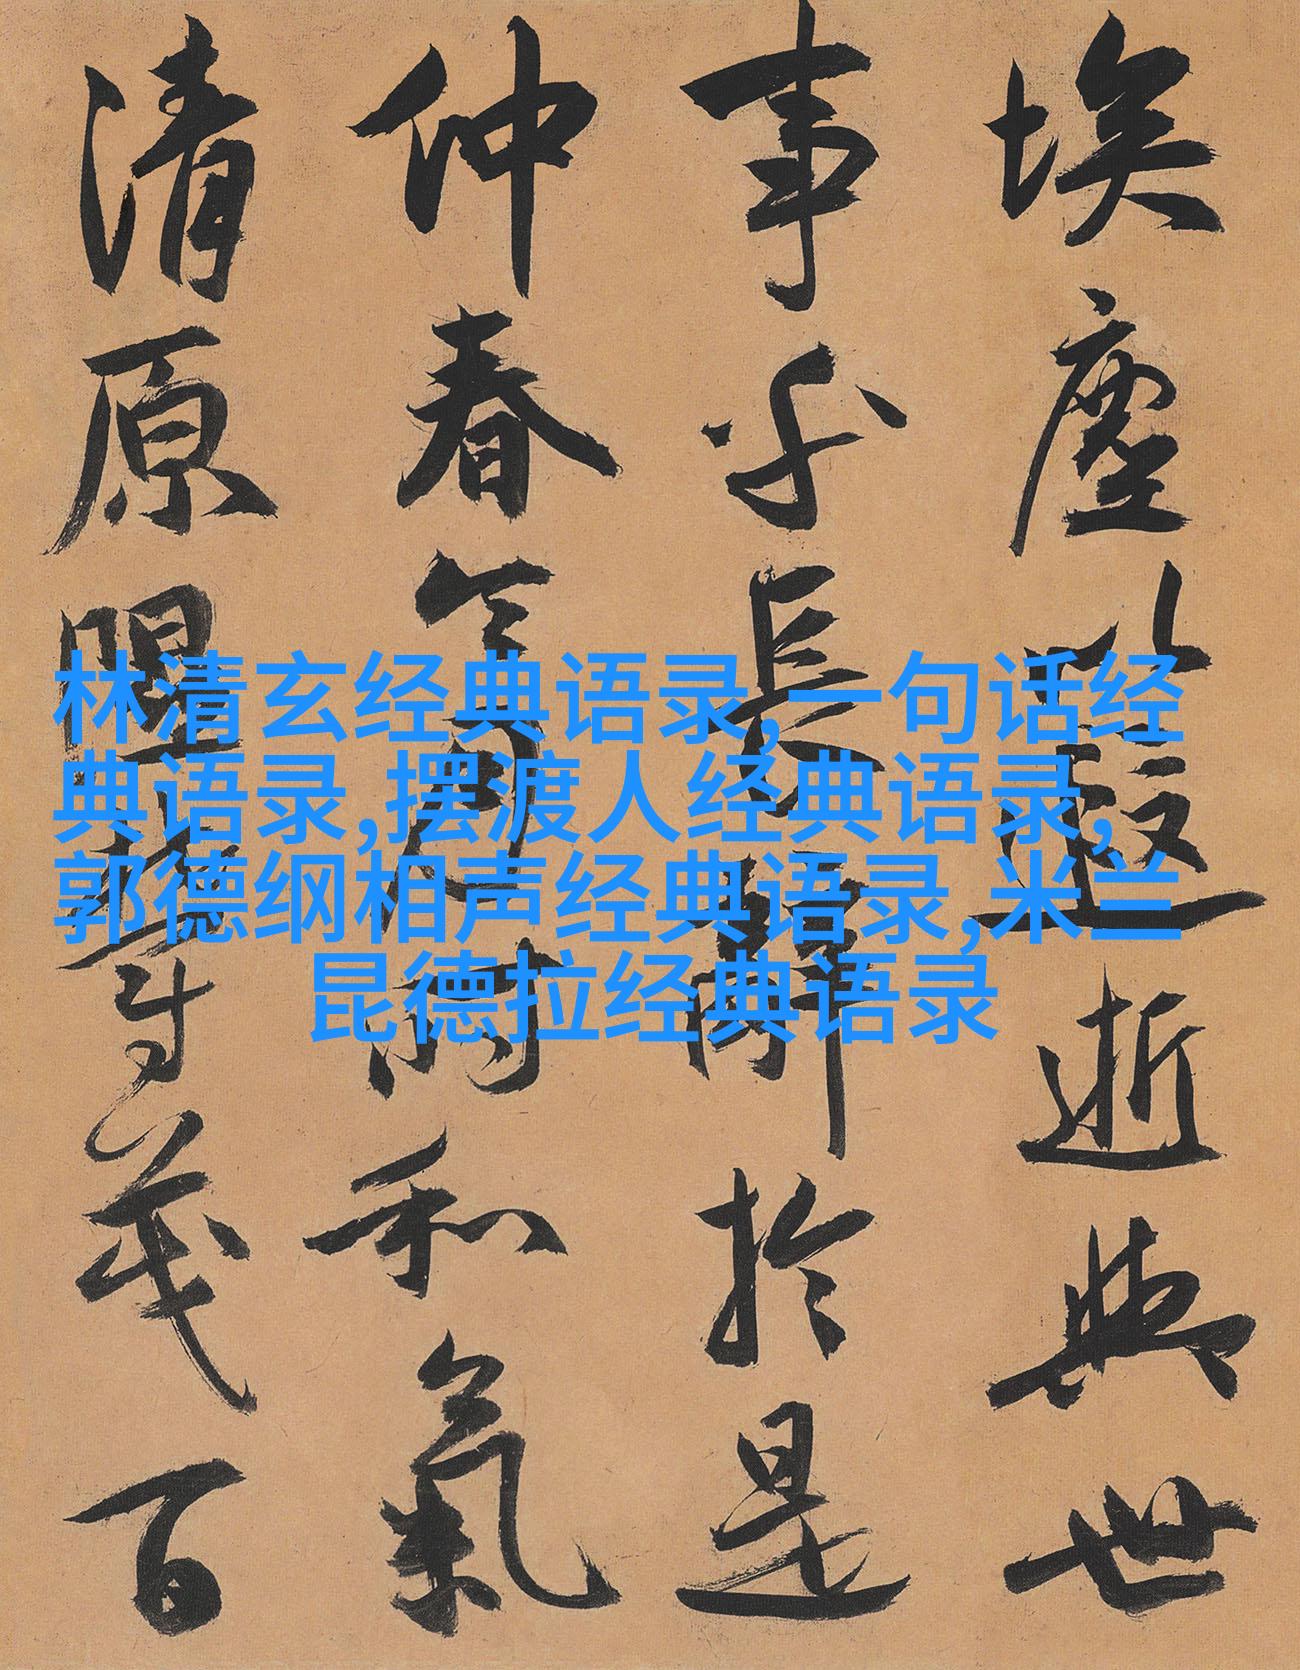 埃塵以遐逝與世
事乎長辭於是
仲春令月時和氣
清原隰鬱茂百
林清玄经典语录,一句话经
典语录,摆渡人经典语录,
郭德纲相声经典语录,米兰
昆德拉经典语录